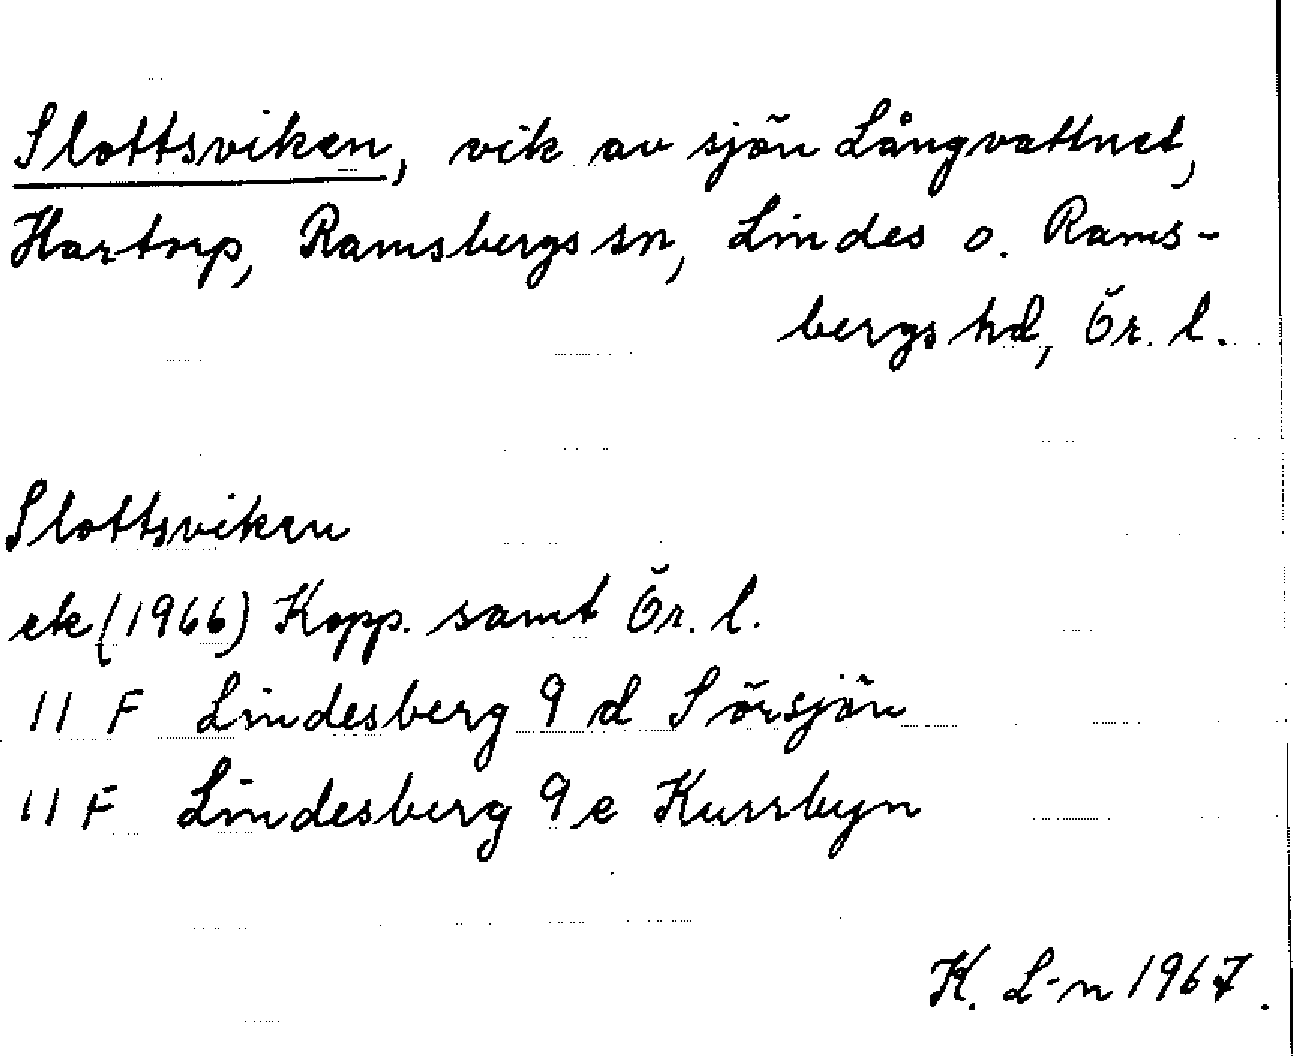 Slottsviken, vik av sjön Långvattnet,
Hartorp, Ramsbergs sn, Lindes o. Rams-
bergs hd, Ör. l.
Slottsviken
ek (1966) Kopp. samt Ör. l.
11 F Lindesberg 9 d Sörsjön
11 F Lindesberg 9 e Kurrbyn
K. L-n 1967.